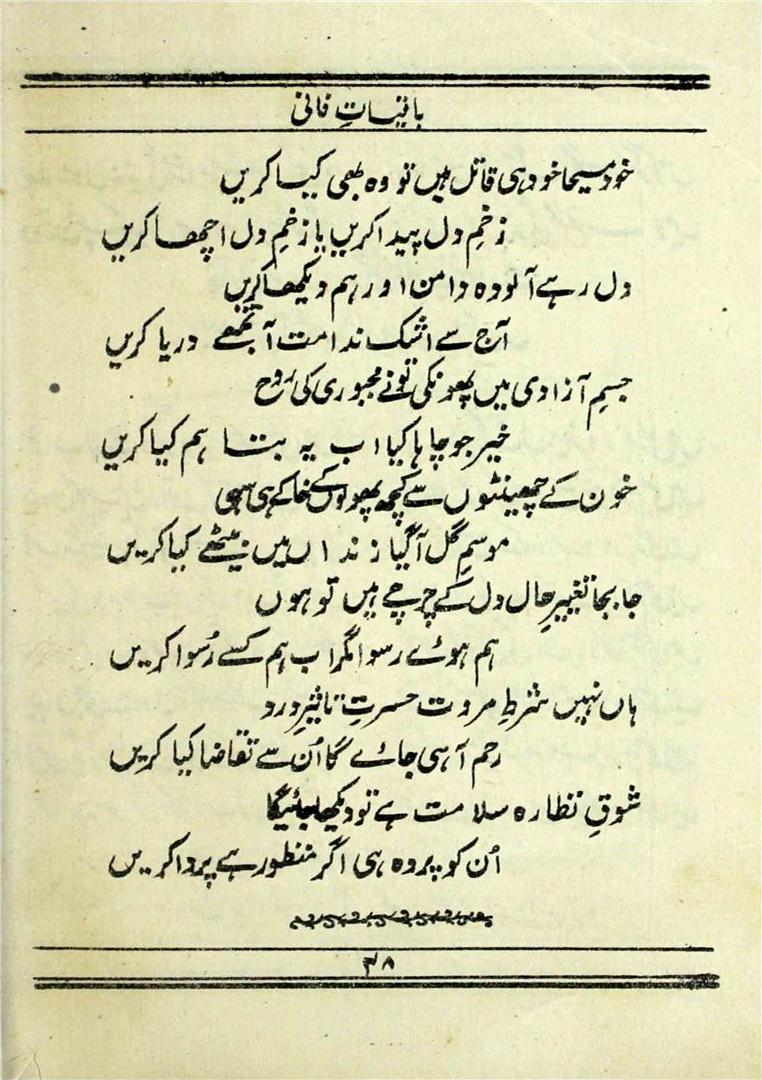 باقیاتِ فانی
خود مسیحا خود ہی قاتل ہیں تو وہ بھی کیا کریں
زخمِ دل پیدا کریں یا زخمِ دل اچھا کریں
دل رہے آلودہ دامن اور ہم دیکھا کریں
آج سے اشکِ ندامت آ تجھے دریا کریں
جسمِ آزادی میں پھونکی تونے مجبوری کی روح
خیر جو چاہا کیا اب یہ بتا ہم کیا کریں
خون کے چھینٹوں سے کچھ پھولوں کے خاکے ہی سہی
موسمِ گل آگیا زنداں میں بیٹھے کیا کریں
جا بجا تغییرِ حال دل کے چرچے ہیں تو ہوں
ہم ہوئے رسوا مگر اب ہم کسے رُسوا کریں
ہاں نہیں شرطِ مروت حسرتِ تاثیرِ درد
رحم آ ہی جائے گا اُن سے تقاضا کیا کریں
شوقِ نظارہ سلامت ہے تو دیکھا جائیگا
اُن کو پردہ ہی اگر منظور ہے پردا کریں
۳۸